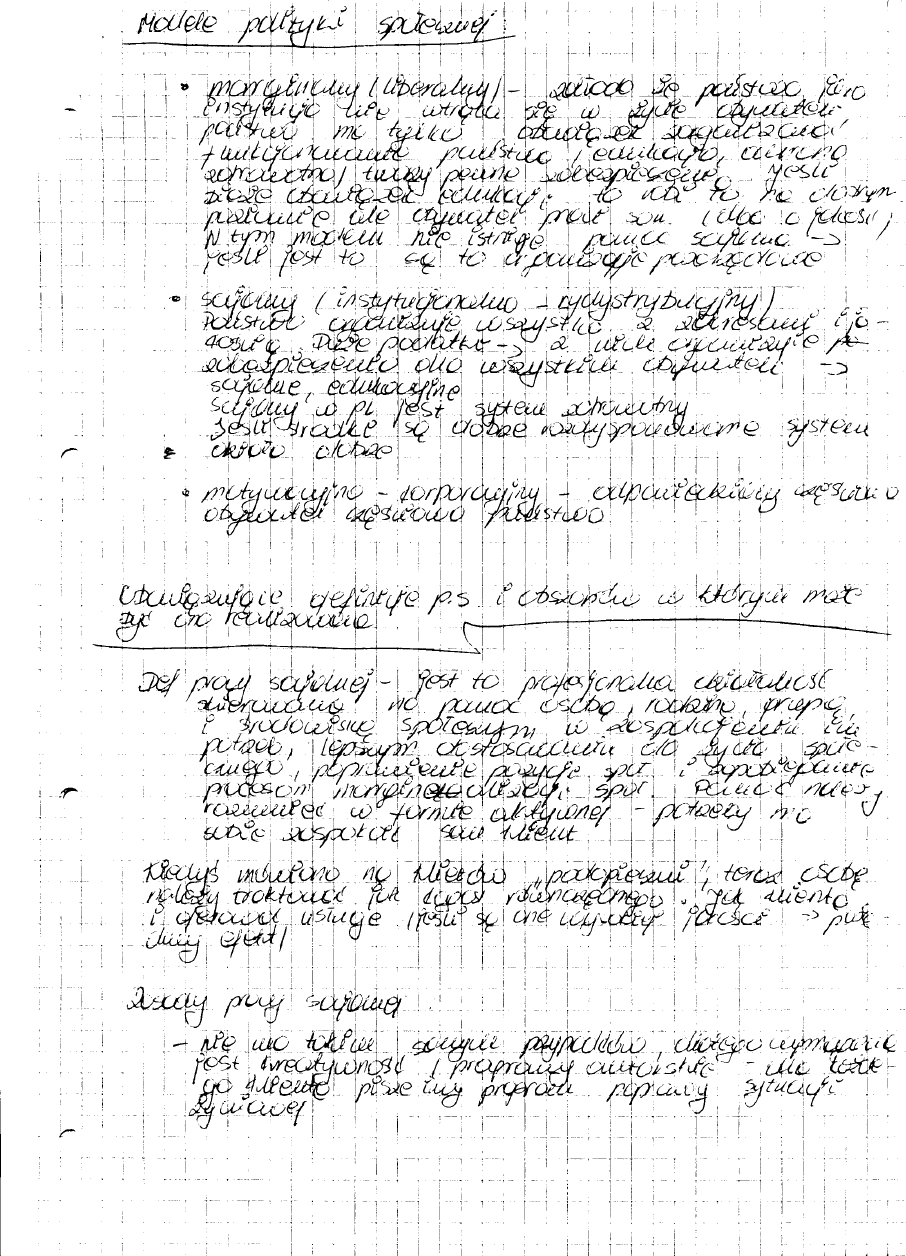 Modele polityki społecznej
• marginalny (liberalny) – zakłada się państwo jako
instytucja nie wtrąca się w życie obywateli,
państwo ma tylko obowiązek zagwarantować
funkcjonowanie państwa, edukację, ochronę
zdrowotną, tworzy pewne zabezpieczenia, jeśli
obowiązek edukacji, to robi to na dobrym
poziomie ale obywatel musi sam dbać o jakość,
W tym modelu nie istnieje pomoc socjalna ->
jeśli jest to są to organizacje pozarządowe
• socjalny (instytucjonalno – redystrybucyjny)
Państwo organizuje wszystko z zakresami i ja-
kością. Duże podatki -> z nich
zabezpieczenia dla wszystkich obywateli ->
socjalne, edukacyjne
socjalny w PL jest system zdrowotny
Jeśli środki są dobrze rozdysponowane system
działa dobrze
• motywacyjno – korporacyjny – odpowiedzialny częściowo
obywatel częściowo państwo
Obowiązujące definicje p.s i obszarów w którym może
być ona realizowana
Def pracy socjalnej – jest to profesjonalna działalność
skierowana na pomoc osobą, rodziną, grupą,
i środowiską społecznym w zaspokojeniu ich
potrzeb, lepszym dostosowaniu do życia społe-
cznego, poprawienie pozycji społ i zapobieganie
procesom marginalizacji społ. Pomoc należy
rozumieć w formie aktywnej – potrzeby ma
sobie zaspokoić sam klient
Kiedyś mówiono na klientów „podopieczni”, teraz osobę
należy traktować jak kogoś równorzędnego, jak klienta
i oferować usługę (jeśli są one wysokiej jakości ->
efekt)
Zasady pracy socjalnej
– nie ma takich samych przypadków, dlatego wymagana
jest kreatywność i programy autorskie – dla każde-
go klienta piszemy program poprawy sytuacji
życiowej